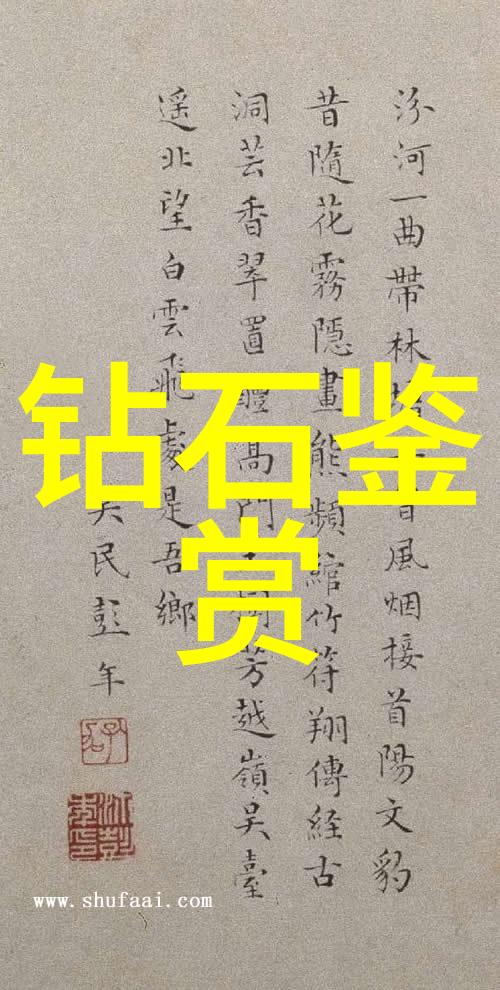 汾河一曲帶林風烟接首陽文豹
昔隨花霧隱畫熊頻綰竹符翔傳経古
洞芸香翠置醴高門芳越嶺吴臺
遥北望白雲飛處是吾鄉
吴民彭年
钻石鉴
赏
www.shufaai.com